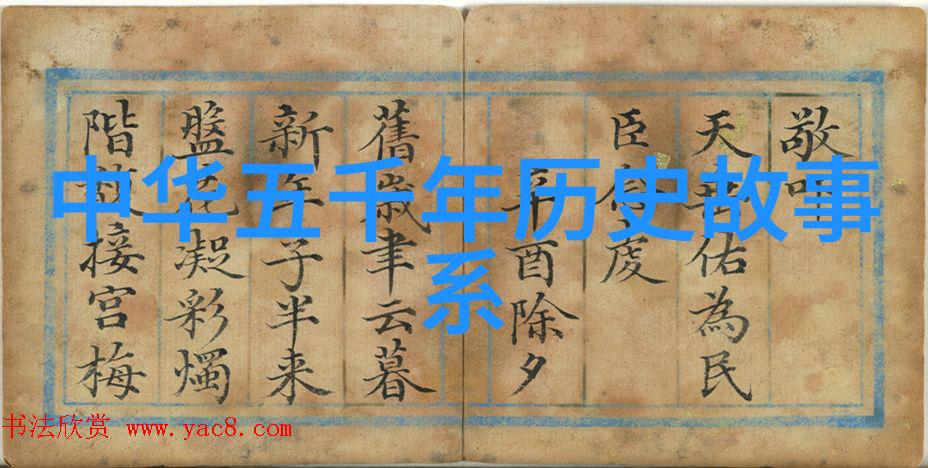 中华五千年历史故事
系
敬
天佑為民
臣虔
辛酉除夕
舊歲聿云暮
新年子半来
盤花凝彩燭
階接宮梅
书法欣赏 www.yac8.com